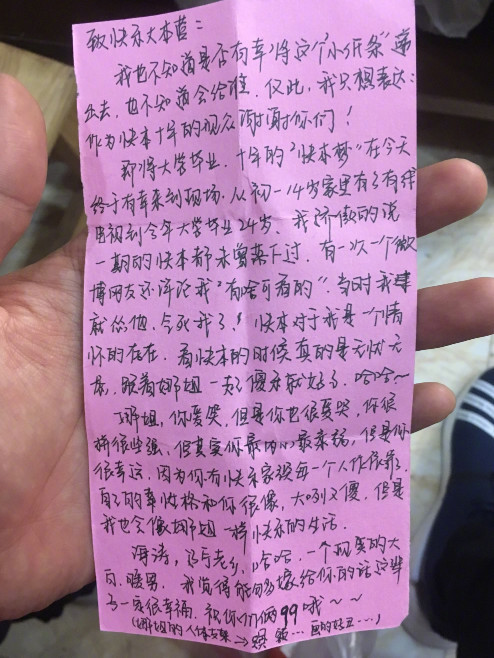 致快乐大本营：
我也不知道是否有幸将这个“小纸条”递
出去，也不知道会给谁，仅此，我只想表达：
作为快本十年的观众谢谢你们！
即将大学毕业，十年的“快本梦”在今天
终于有幸来到现场，从初一14岁家里有了有线
电视到今年大学毕业24岁，我骄傲的说
一期的快本都未曾落下过，有一次一个微
博网友还评论我“有啥可看的”，当时我肆
就怂他，令死我了！快本对于我是一个情
怀的存在，看快本的时候真的是无忧无
虑，跟着娜姐一起傻乐就好了，哈哈~
娜姐，你爱笑，但是你也很爱哭，你很
拼很坚强，但其实你最内心最柔弱，但是你
很幸运，因为你有快乐家族每一个人作依靠，
自己的幸性格和你很像，大咧又傻，但是
我也会像娜姐一样快乐的生活。
海涛，巧老乡，哈哈，一个现实的大
白，暖男，我觉得能够嫁给你的话这辈
子一定很幸福，祝你们俩99哦~~
(娜姐的人体支架→ 画的好丑…)